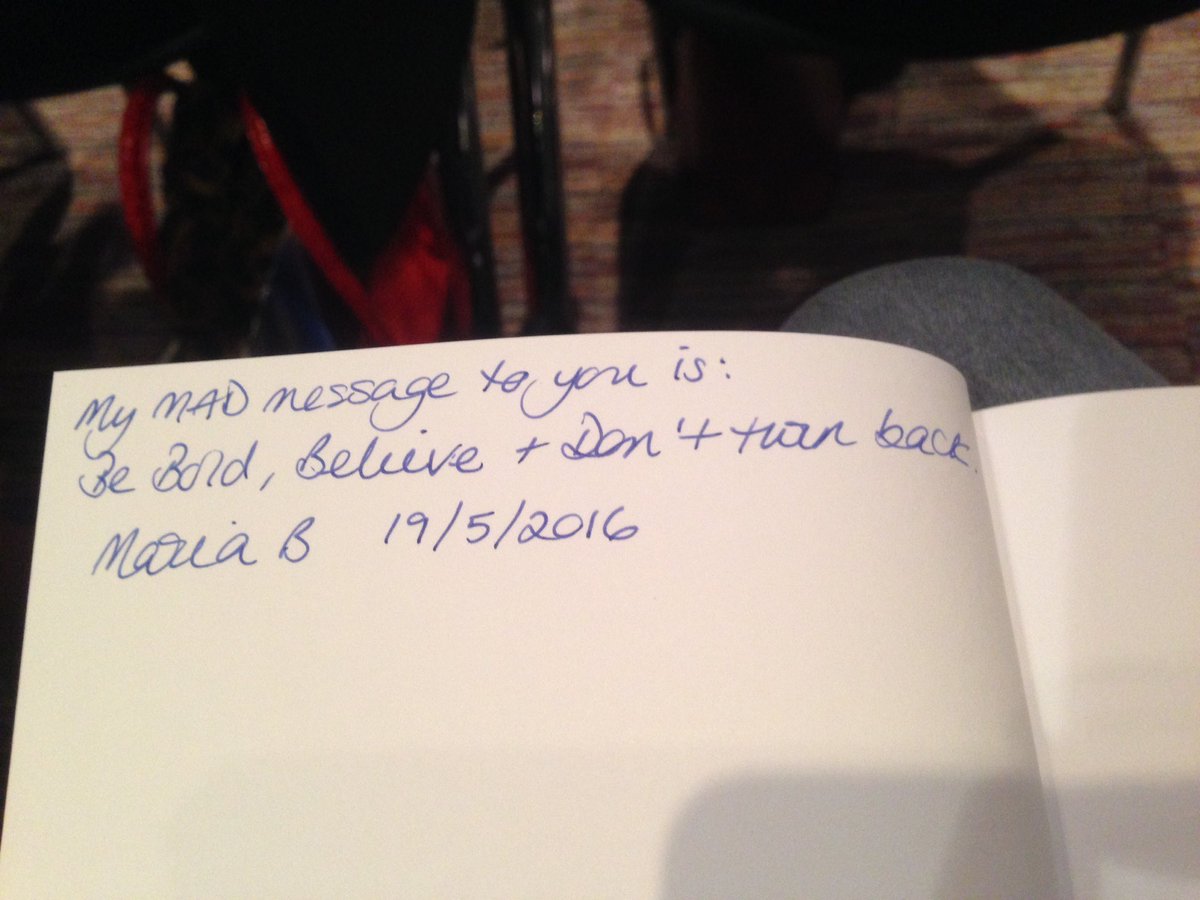 My MAD message to you is:
Be Bold, Believe + Don't turn back.
Maria B 19/5/2016